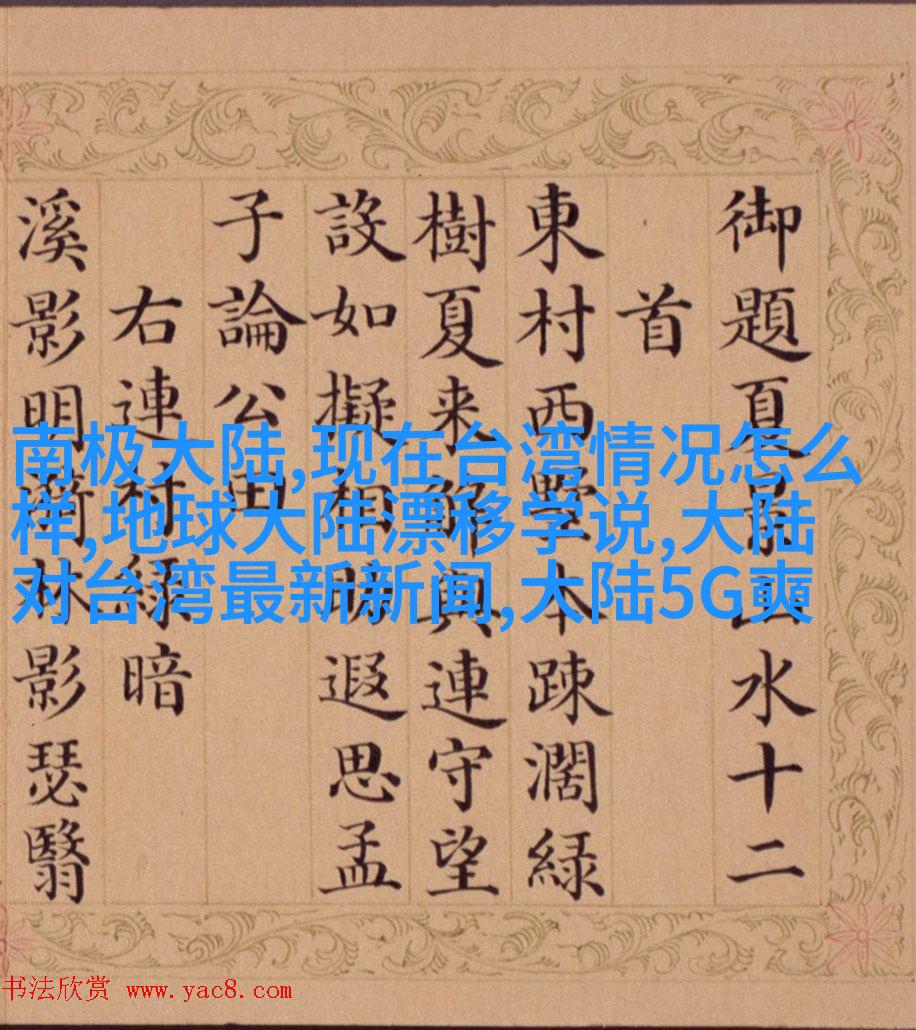 御題夏景山水十二
首
東村西墅本疎濶緑
樹夏来解與連守望
設如擬相助遐思孟
子論公田
右連村緑暗
溪影明漪林影瑟翳
南极大陆,现在台湾情况怎么
样,地球大陆漂移学说,大陆
对台湾最新新闻,大陆5G奭
书法欣赏 www.yac8.com